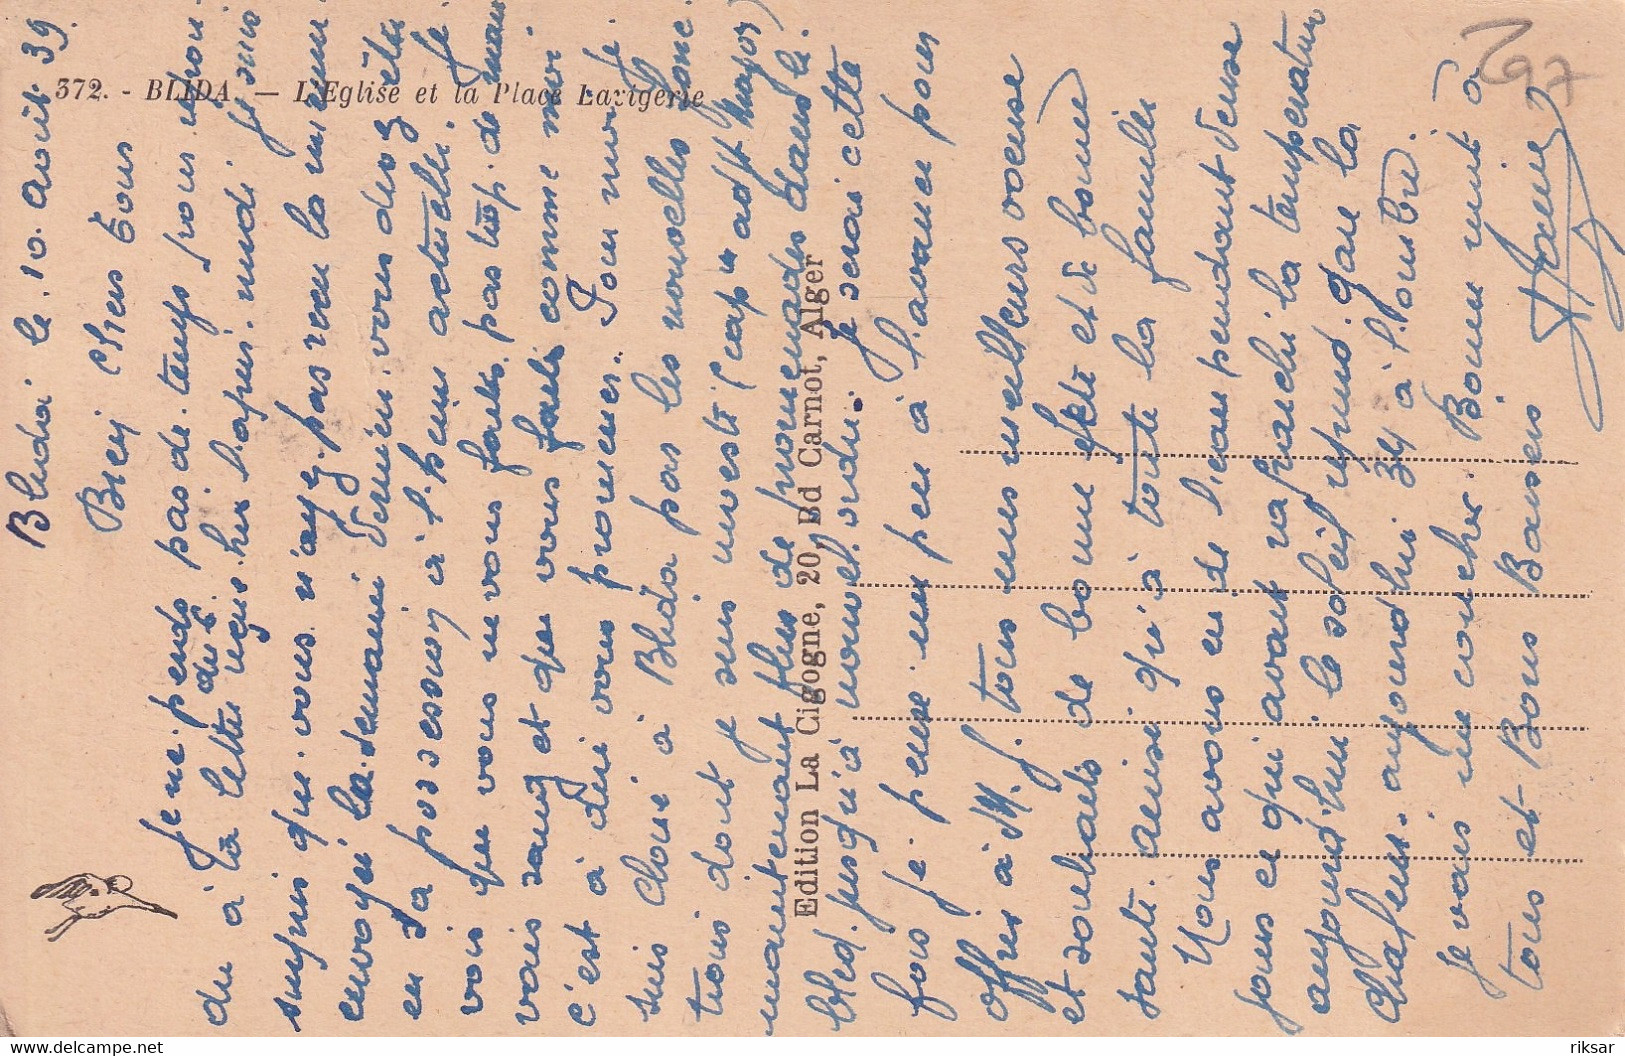 372. - BLIDA. — L'Eglise et la Place Lavigerie
Edition La Cigogne, 20, Bd Carnot, Alger
297
Blida le 10. août 39.
Bien chers tous
Je ne perds pas de temps pour répon
du à la lettre du 6. reçue hier l'après-midi je suis
surpris que vous n'ayez pas reçu la mienne
envoyée la semaine dernière. vous devez être
en sa possession à l'heure actuelle. Je
vois que vous ne vous faites pas trop de mau
vais sang et que vous faites comme moi
c'est à dire vous promener. Pour moi je
suis cloué à Blida pas les nouvelles fonc
tions dont je suis investi (cap. adjt major)
maintenant plus de promenades dans le
bled. jusqu'à nouvel ordre. Je serai cette
fois je pense un peu à l'avance pour
offrir à M. J. tous mes meilleurs voeux
et souhaits de bonne fête et de bonne
santé. ainsi qu'à toute la famille
Nous avons eu de l'eau pendant deux
jours ce qui avait rafraichi la température
aujourd'hui le soleil reprend. gare la
chaleur. aujourd'hui 34 à l'ombre.
Je vais me coucher. Bonne nuit à
tous et Bons Baisers